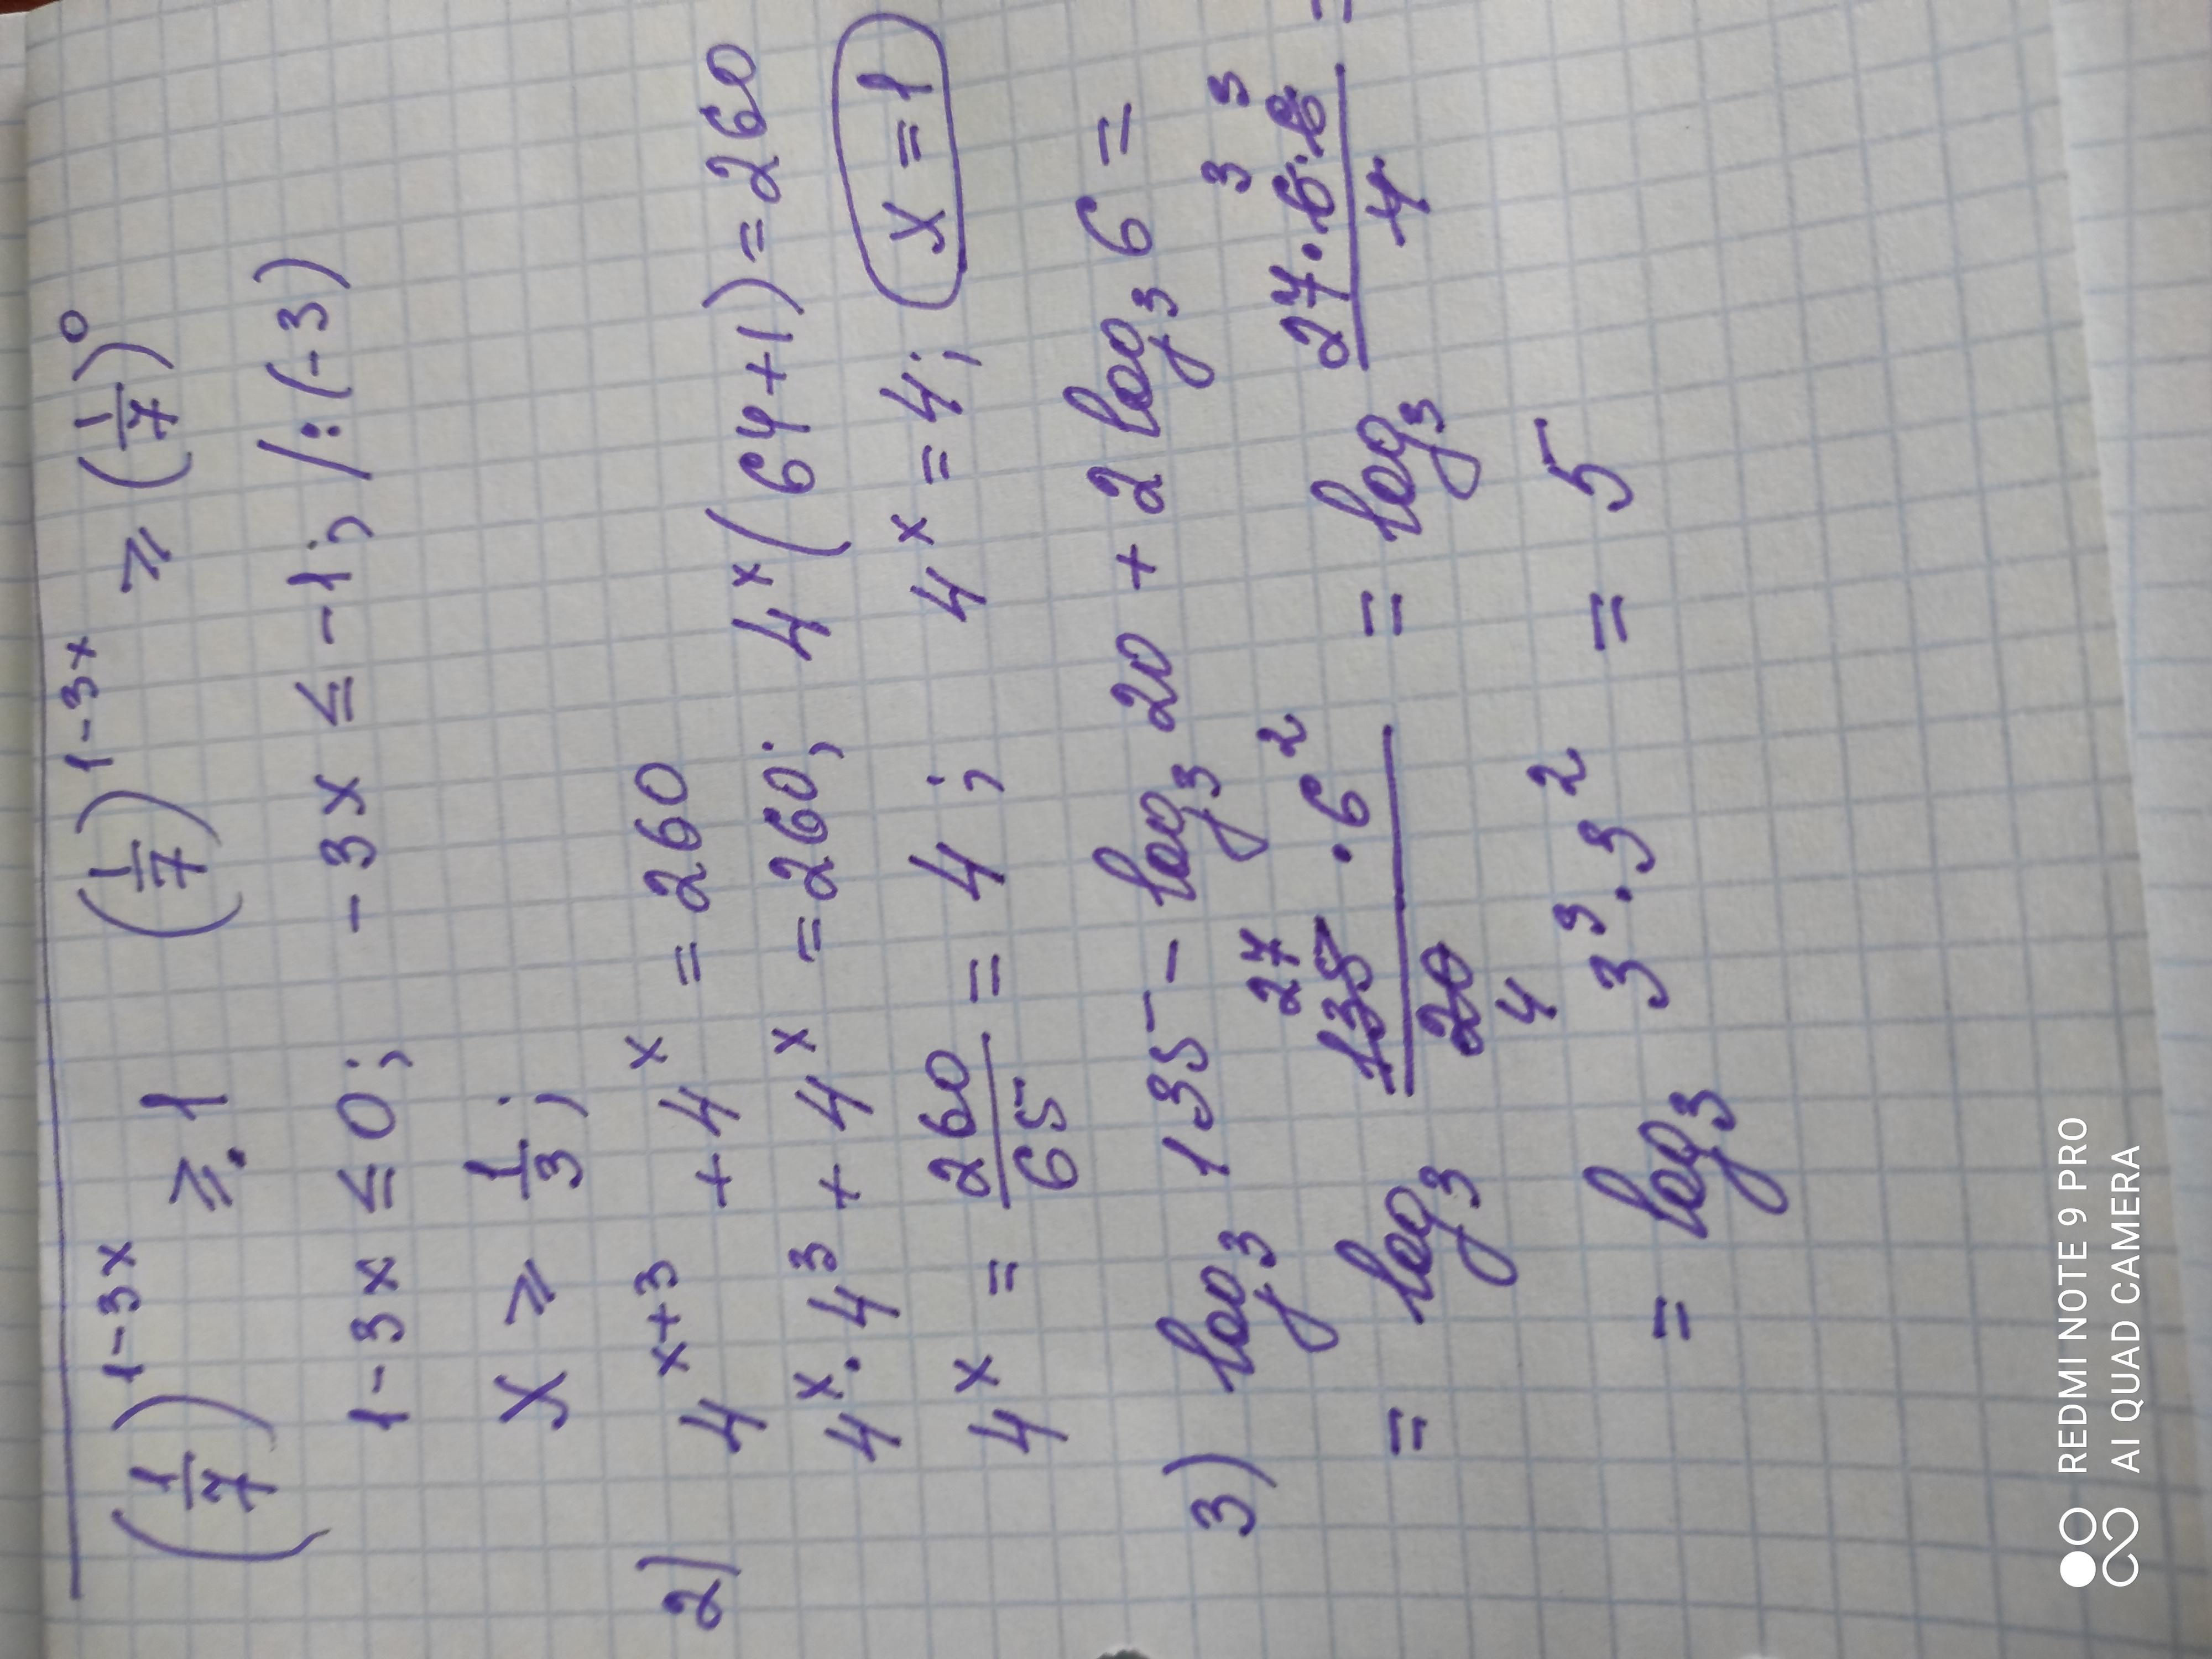 (1/7)^(1-3x) ≥ 1 (1/7)^(1-3x) ≥ (1/7)^0
1-3x ≤ 0; -3x ≤ -1; /:(-3)
x ≥ 1/3;
2) 4^(x+3) + 4^x = 260
4^x · 4^3 + 4^x = 260; 4^x(64+1) = 260
4^x = 260/65 = 4; 4^x = 4; x = 1
3) log_3 135 - log_3 20 + 2 log_3 6 =
= log_3 135/20 · 6^2 27 4 = log_3 (27·6·6)/4 3 3 =
= log_3 3^3 · 3^2 = 5
REDMI NOTE 9 PRO
AI QUAD CAMERA